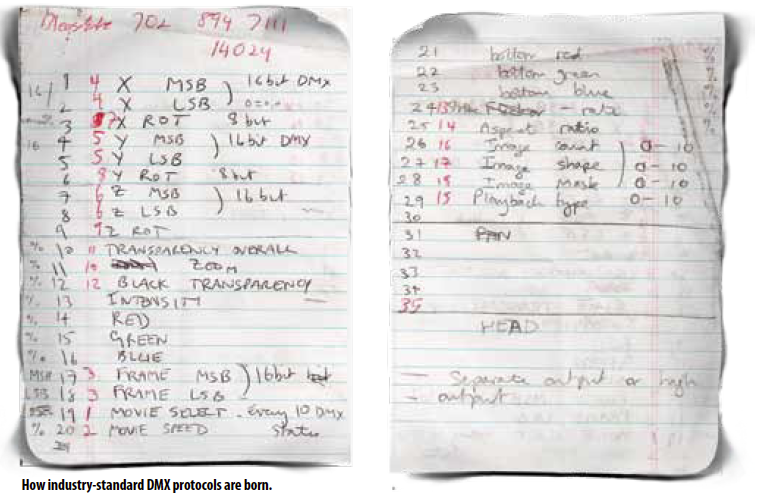 702 894 7111
14024
1 4 X MSB 16 bit DMX
16/
2 4 X LSB
3 7 X ROT 8 bit
16 4 5 Y MSB 16 bit DMX
5 5 Y LSB
6 8 Y ROT 8 bit
7 6 Z MSB 16 bit
8 6 Z LSB
9 9 Z ROT
% 10 11 TRANSPARENCY OVERALL
% 11 10 ZOOM
% 12 12 BLACK TRANSPARENCY
% 13 INTENSITY
% 14 RED
% 15 GREEN
% 16 BLUE
MSB 17 3 FRAME MSB 16 bit
LSB 18 3 FRAME LSB
19 1 MOVIE SELECT - Every 10 DMX
% 20 2 MOVIE SPEED States
21 bottom red
22 bottom green
23 bottom blue
24 13 - rate
25 14 Aspect ratio
26 16 Image count 0 - 10
27 17 Image shape 0 - 10
28 18 Image Mask 0 - 10
29 15 Playback type 0 - 10
30
31 PAN
32
33
34
35
HEAD
— Separate output or high
- output
How industry-standard DMX protocols are born.